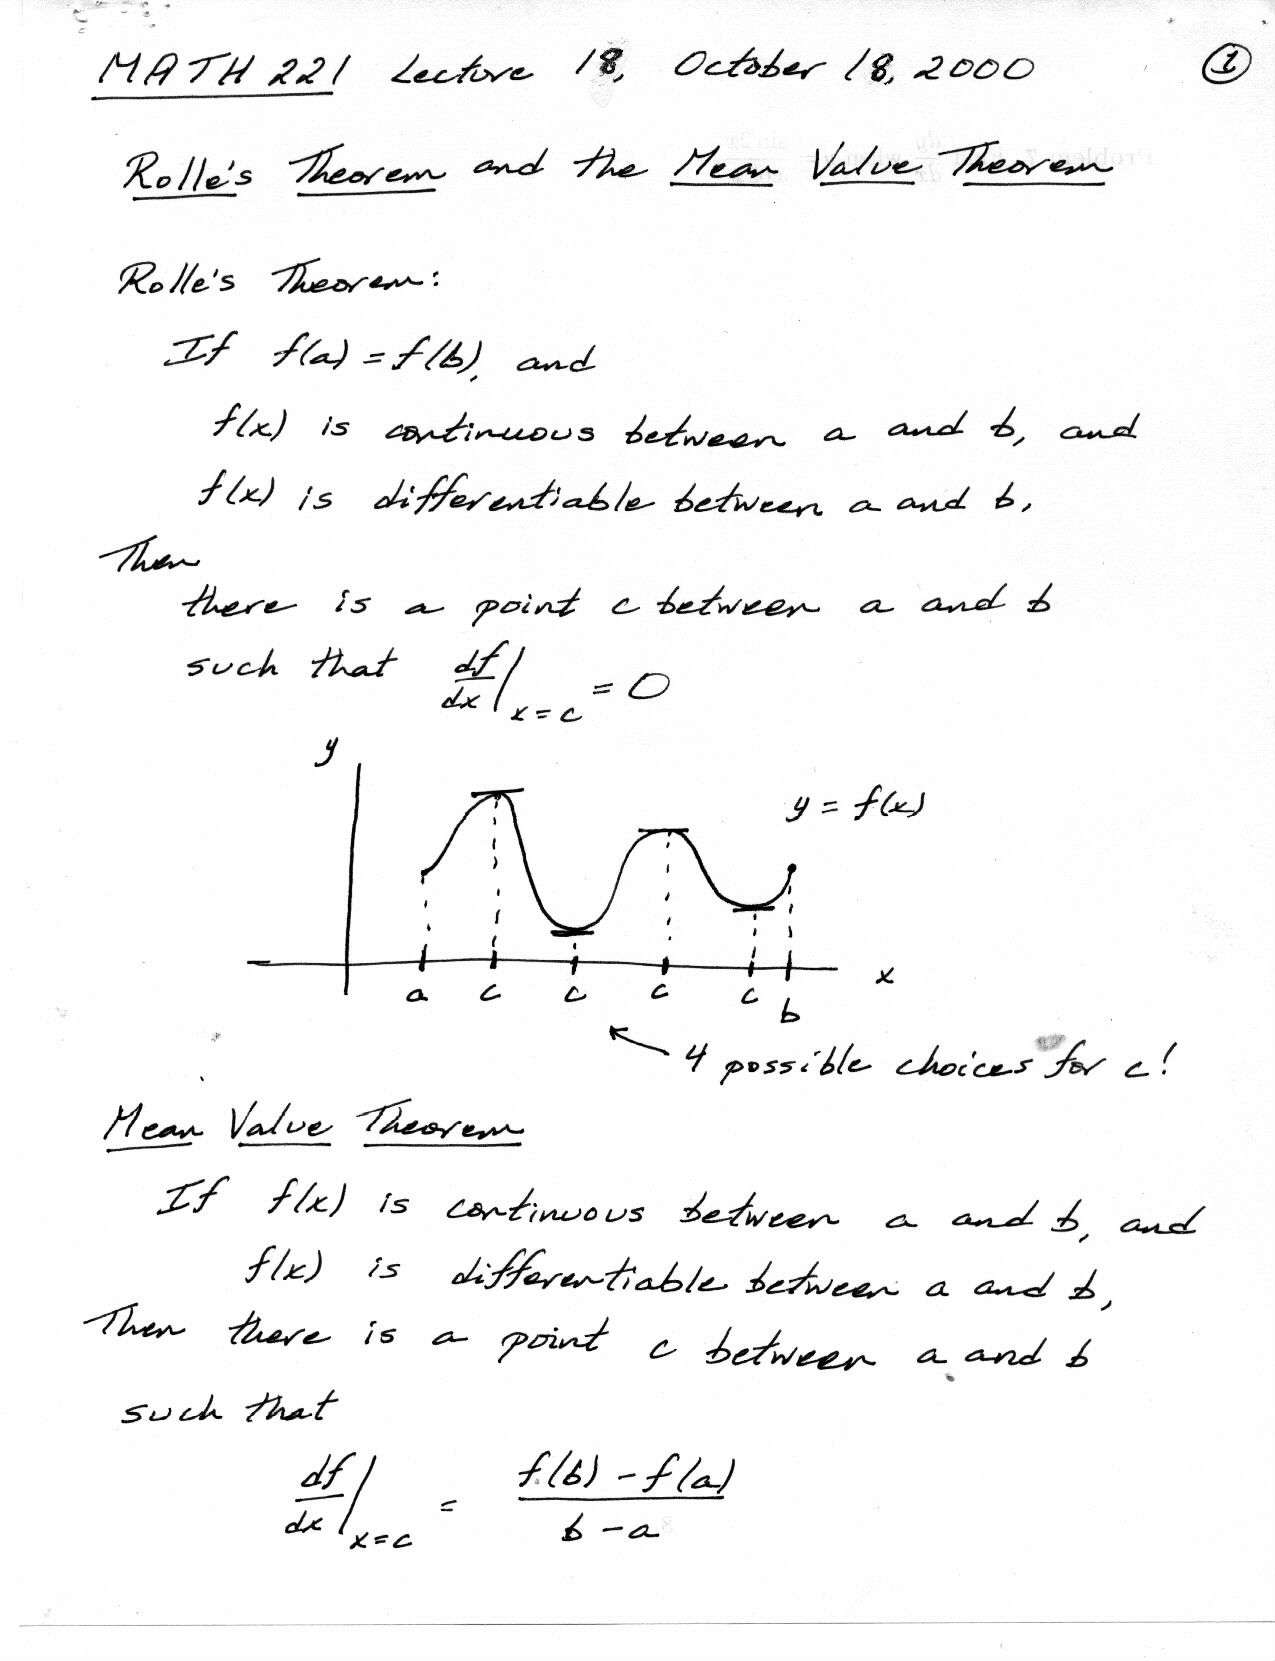 MATH 221 Lecture 18, October 18, 2000 ①
Rolle's Theorem and the Mean Value Theorem
Rolle's Theorem:
If f(a) = f(b), and
f(x) is continuous between a and b, and
f(x) is differentiable between a and b,
Then
there is a point c between a and b
such that df/dx|x=c = 0
y
y = f(x)
a c c c c b x
4 possible choices for c!
Mean Value Theorem
If f(x) is continuous between a and b, and
f(x) is differentiable between a and b,
Then there is a point c between a and b
such that
df/dx|x=c = f(b) - f(a) / b - a